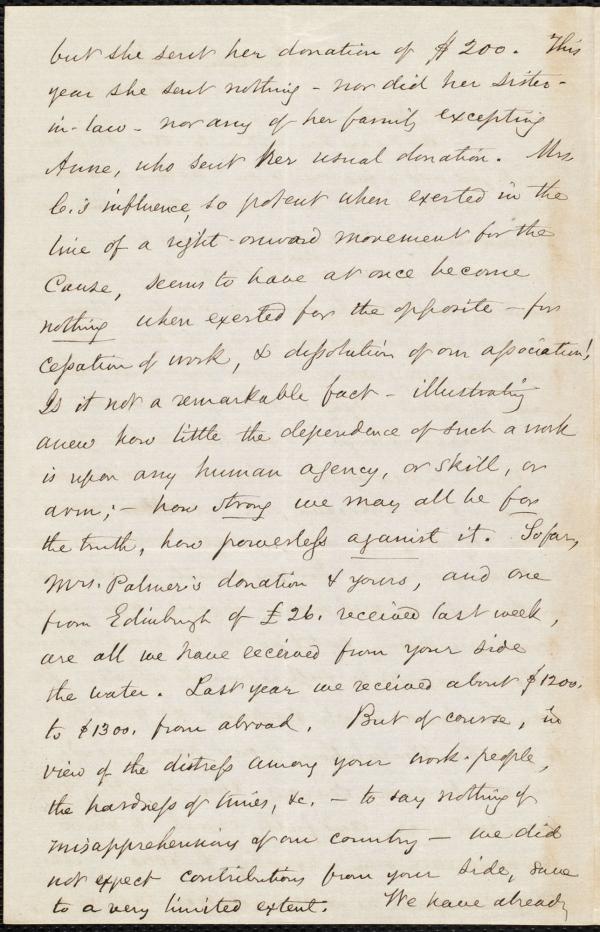 but she sent her donation of $200. This
year she sent nothing - nor did her sister-
in-law - nor any of her family excepting
Anne, who sent her usual donation. Mrs.
C.'s influence, so potent when exerted in the
line of a right-onward movement for the
Cause, seems to have at once become
nothing when exerted for the opposite - for
cessation of work, & dissolution of our association!
Is it not a remarkable fact - illustrating
anew how little the dependence of such a work
is upon any human agency, or skill, or
arm; - how strong we may all be for
the truth, how powerless against it. So far,
Mrs. Palmer's donation & yours, and one
from Edinburgh of £26. received last week,
are all we have received from your side
the water. Last year we received about $1200.
to $1300. from abroad. But of course, in
view of the distress among your work-people,
the hardness of times, &c. - to say nothing of
misapprehensions of our country - we did
not expect contributions from your side, save
to a very limited extent. We have already